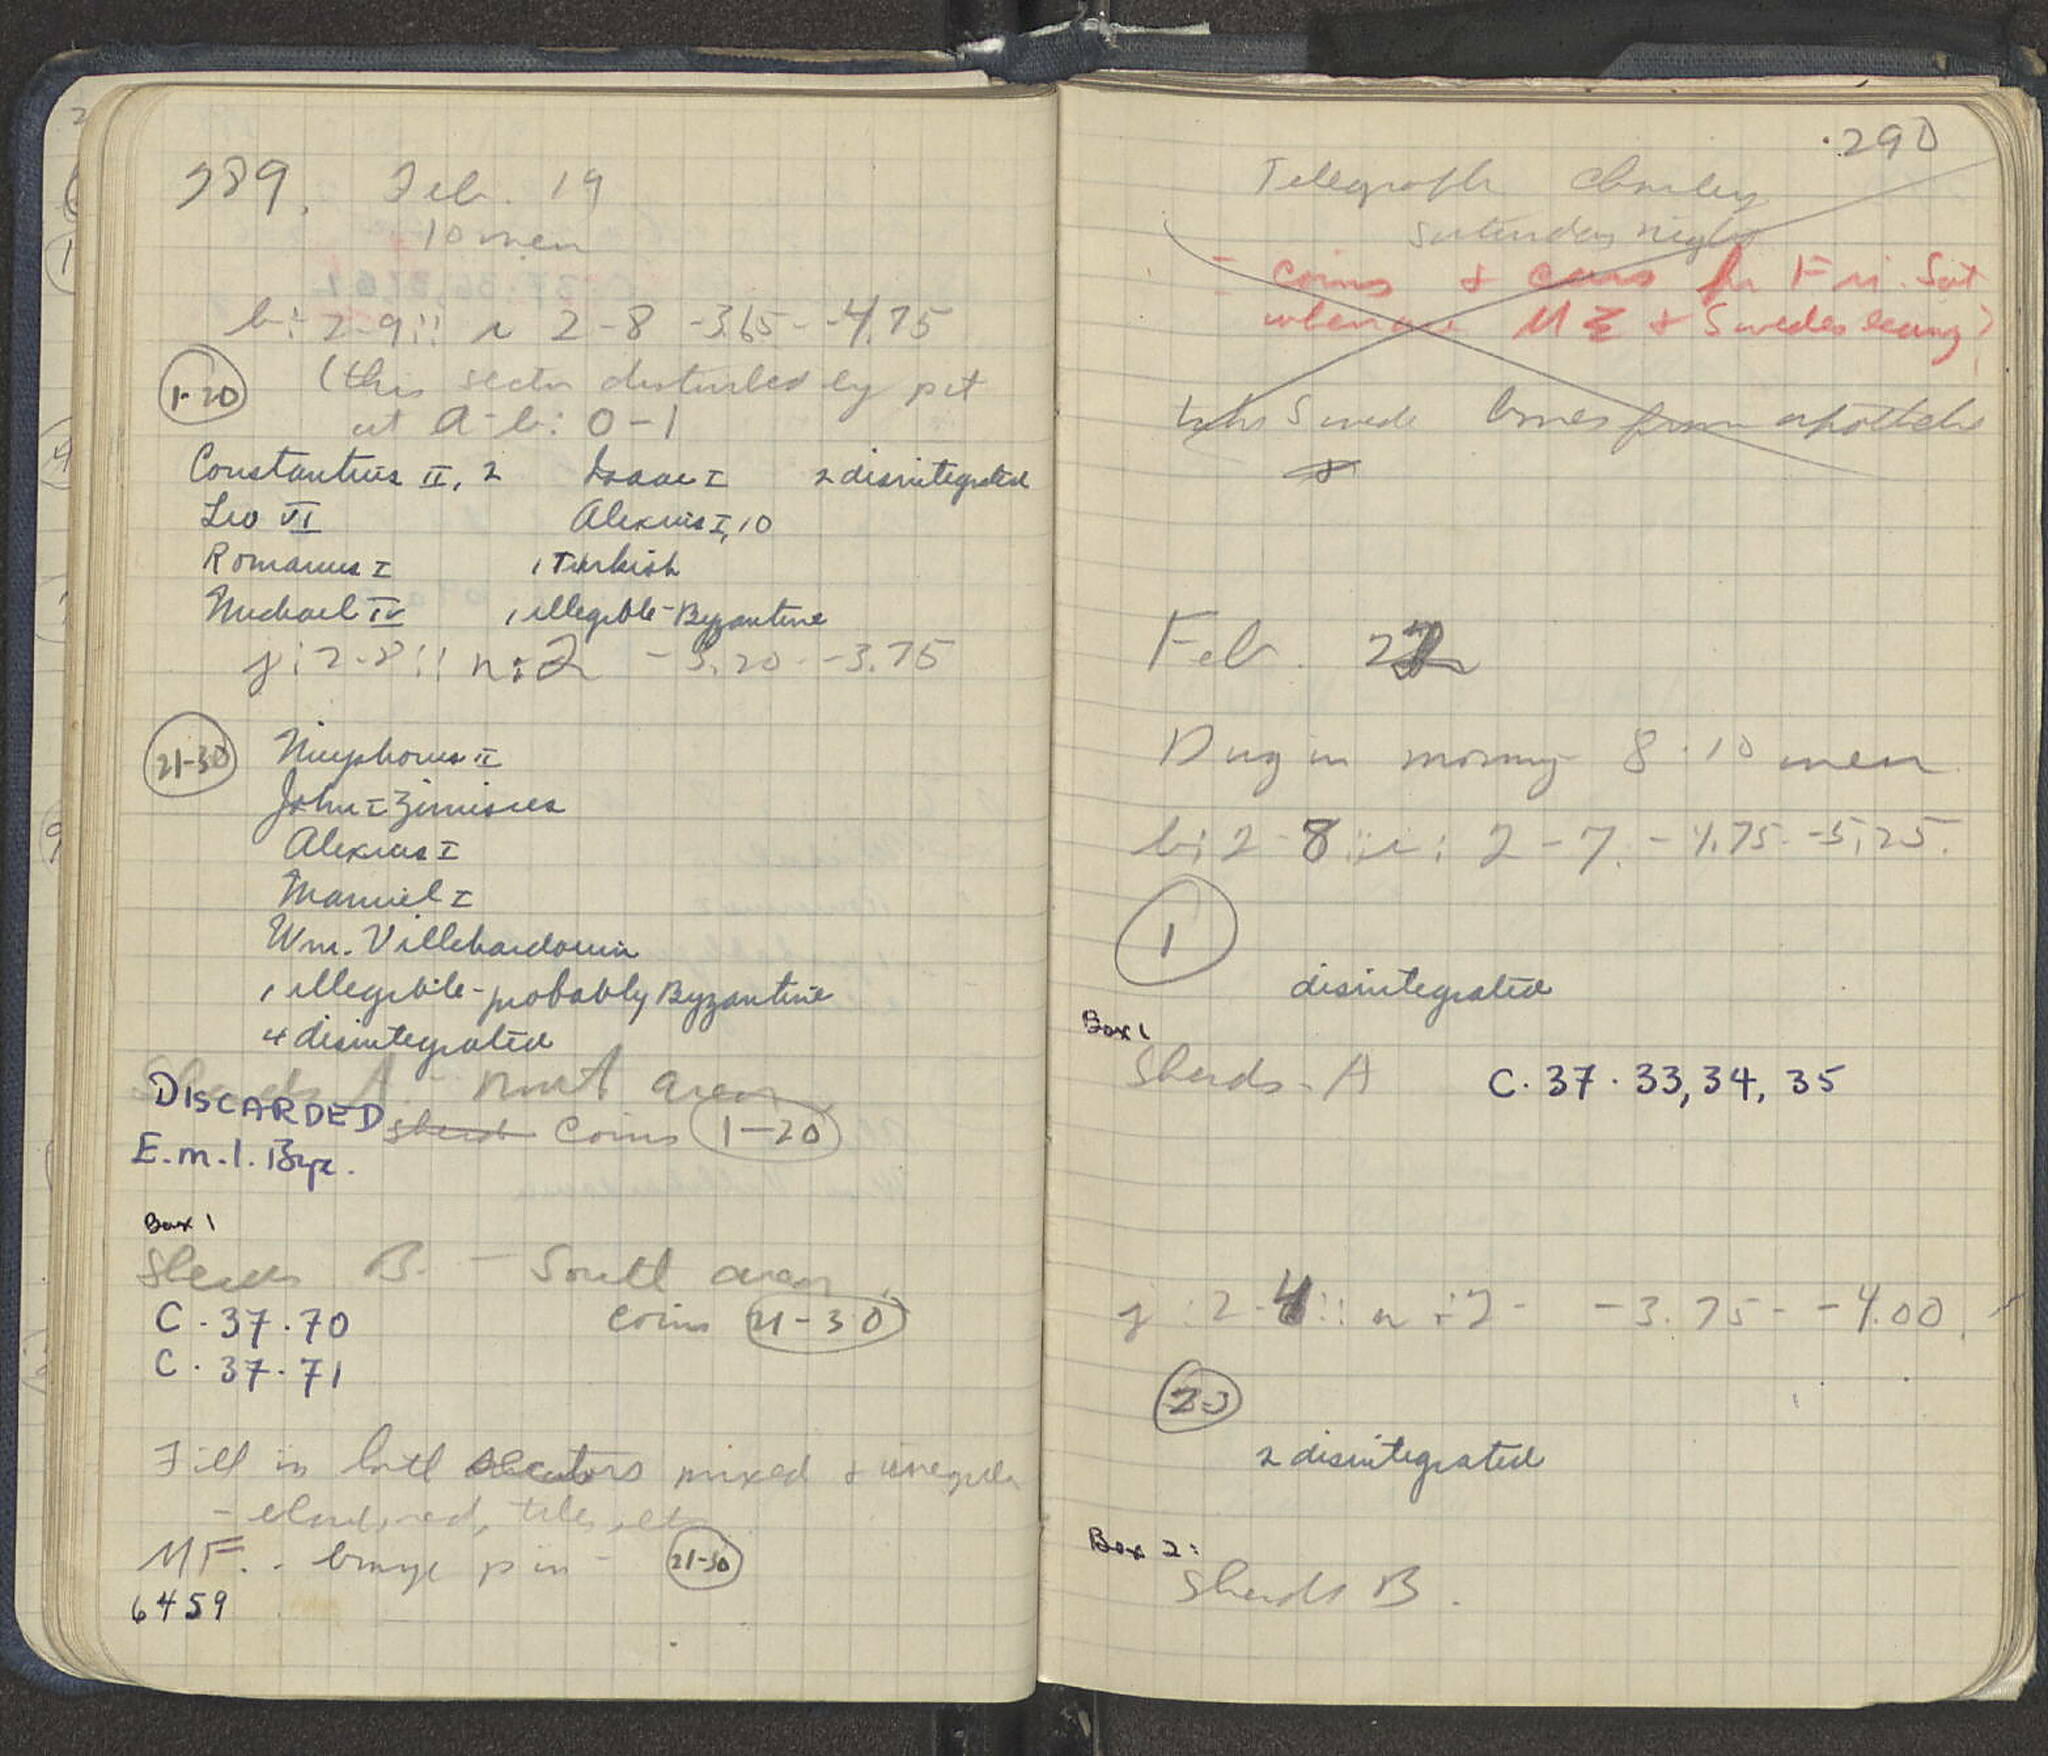 289. Feb. 19
10 men
b: 2-9 :: i 2-8 -3.65 - -4.75
1-20 (this sector disturbed by pit
at a-b: 0-1
Constantius II, 2 Isaac I 2 disintegrated
Leo VI Alexius I, 10
Romanus I 1 Turkish
Michael IV 1 illegible-Byzantine
j: 2-8 :: n: 2 -3.20 - -3.75
21-30 Nicephorus II
John I Zimisces
Alexius I
Manuel I
Wm. Villehardouin
1 illegible-probably Byzantine
4 disintegrated
Sherds A - North area
DISCARDED sherds coins 1-20
E.m.l. Byz.
Box 1
Sherds B. - South area
C.37.70 coins 21-30
C.37.71
Fill in both sectors mixed & irregular
- red, tiles, etc.
MF. - bronze pin - 21-30
6459
290
Telegraph Charley
Saturday night
= coins & cars for Fri. Sat
when are & Swedes leaving?
Swede from
&
Feb. 22
Dug in morning 8-10 men
b: 2-8 :: i: 2-7. -4.75 - -5.25.
1
disintegrated
Box 1
Sherds - A C.37.33, 34, 35
j: 2-4 :: n: 2- -3.75 - -4.00.
2-3
2 disintegrated
Box 2:
Sherds B.